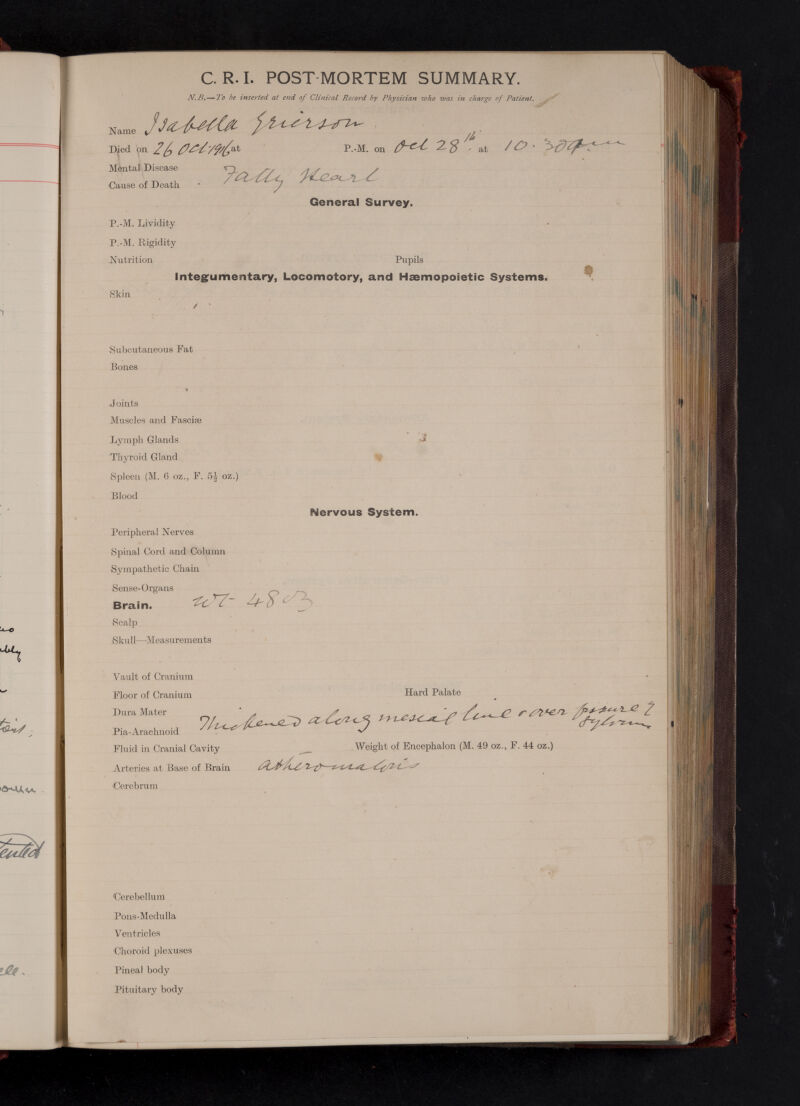 C. R. I. POST-MORTEM SUMMARY.
N.B.—To be inserted at end of Clinical Record by Physician who was in charge of Patient.
Name Isabella Grierson
Died on 26 Oct 1916 at P.-M. on Oct 28th. at 10.30
Mental Disease
Cause of Death - Fatty Heart
General Survey.
P.-M. Lividity
P.-M. Rigidity
Nutrition Pupils
Integumentary, Locomotory, and Hæmopoietic Systems.
Skin
Subcutaneous Fat
Bones
Joints
Muscles and Fasciæ
Lymph Glands
Thyroid Gland
Spleen (M. 6 oz., F. 5½ oz.)
Blood
Nervous System.
Peripheral Nerves
Spinal Cord and Column
Sympathetic Chain
Sense-Organs
Brain. wt- 48 oz
Scalp
Skull—Measurements
Vault of Cranium
Floor of Cranium Hard Palate
Dura Mater
Pia-Arachnoid Thickened along mesial line & over fissure of Sylvius
Fluid in Cranial Cavity Weight of Encephalon (M. 49 oz., F. 44 oz.)
Arteries at Base of Brain atheromatous
Cerebrum
Cerebellum
Pons-Medulla
Ventricles
Choroid plexuses
Pineal body
Pituitary body